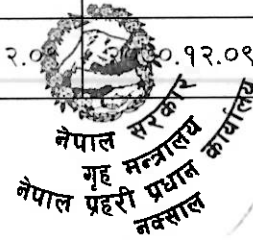 २.०
०.१२.०९
नेपाल सरकार
गृह मन्त्रालय
नेपाल प्रहरी प्रधान कार्यालय
नक्साल